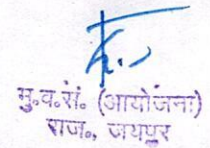 मु॰व॰सं॰ (आयोजनाः)
राज॰, जयपुर